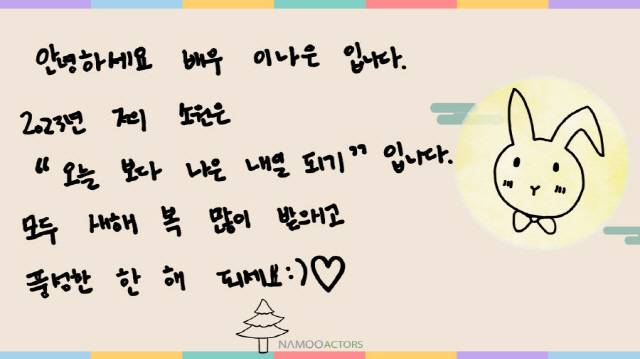 안녕하세요 배우 이나은 입니다.
2023년 저의 소원은
“오늘 보다 나은 내일 되기” 입니다.
모두 새해 복 많이 받으시고
풍성한 한 해 되세요:)♡
NAMOOACTORS